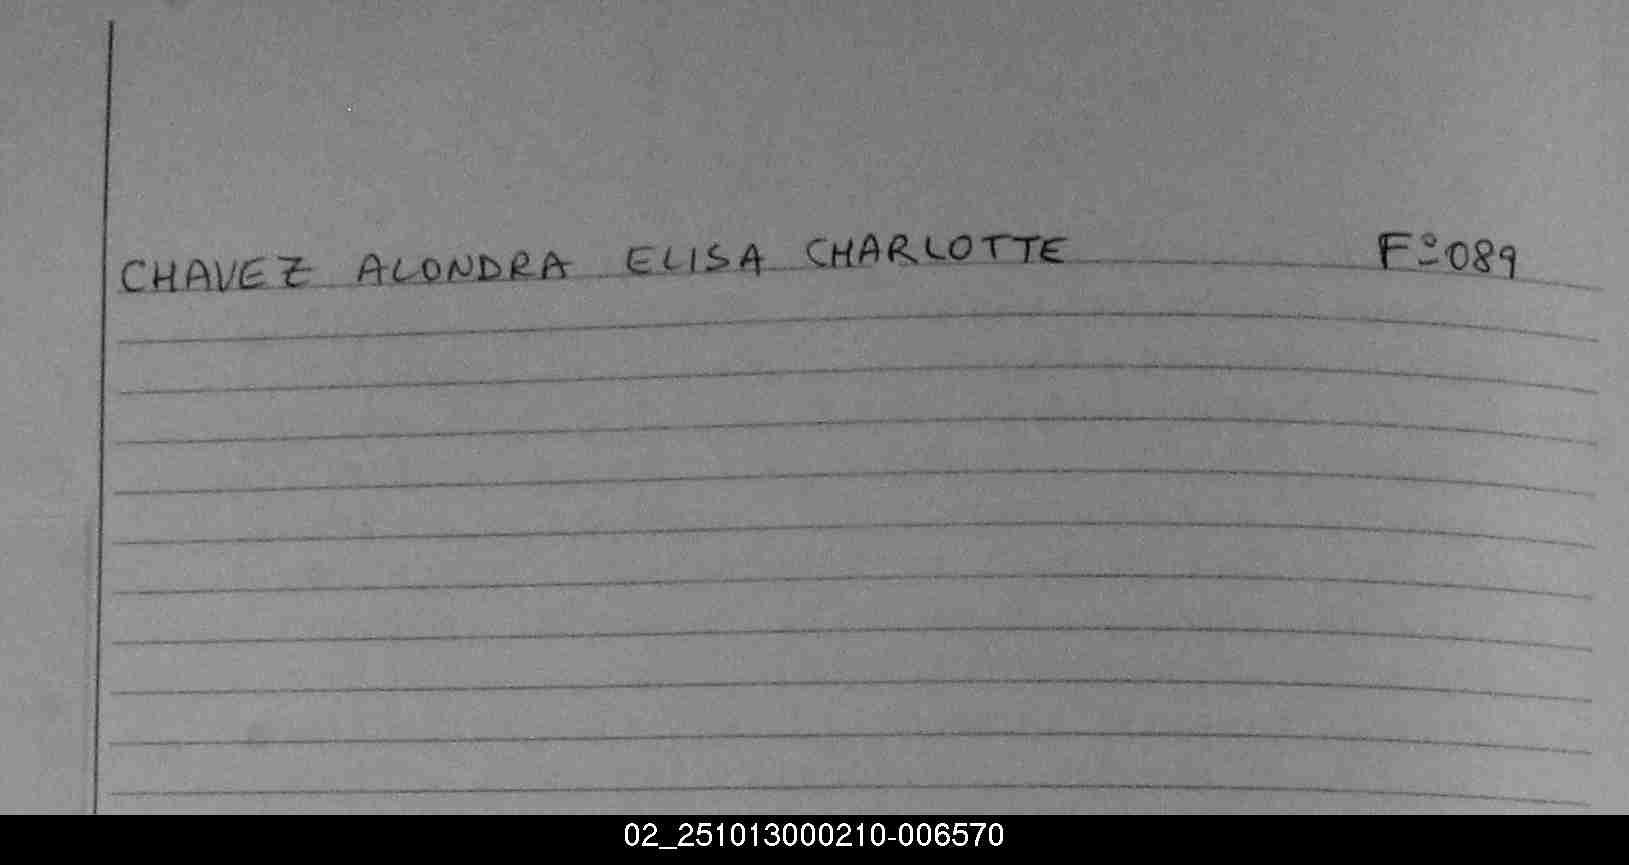 CHAVEZ ALONDRA ELISA CHARLOTTE Fº089
02_251013000210-006570